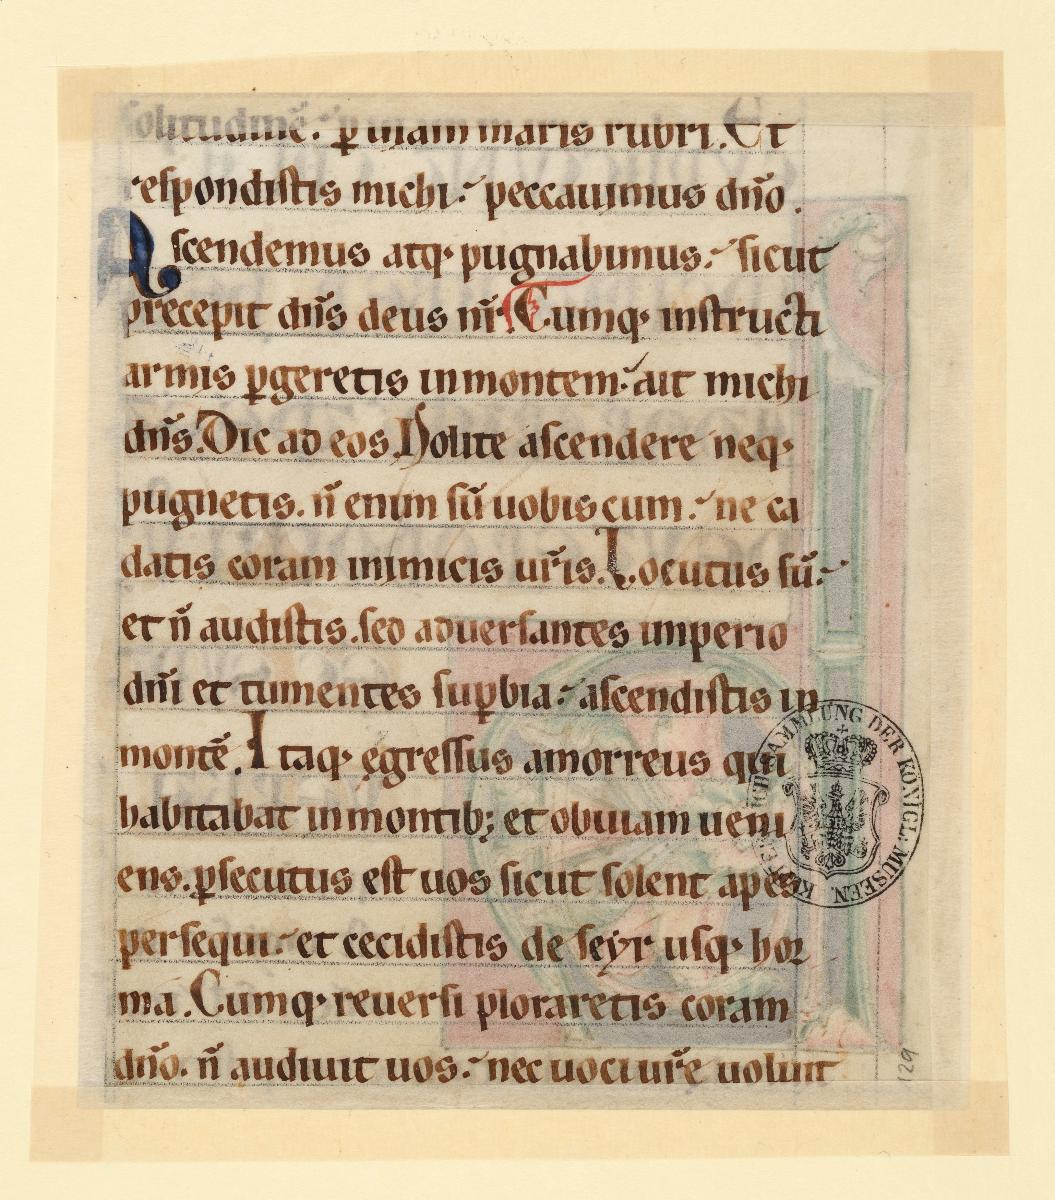 solitudinē. ꝑ uiam maris rubri. Et
respondistis michi. peccauimus dño.
Ascendemus atq; pugnabimus. sicut
precepit dñs deus nr̃. Cumq; instructi
armis ꝑgeretis in montem. ait michi
dñs. Dic ad eos. Nolite ascendere neq;
pugnetis. ñ enim sũ uobiscum. ne ca
datis coram inimicis ur̃is. Locutus sũ.
et ñ audistis. sed aduersantes imperio
dñi et tumentes suꝑbia. ascendistis in
montē. Itaq; egressus amorreus qui
habitabat in montib; et obuiam ueni
ens. ꝑsecutus est uos sicut solent apes
persequi. et cecidistis de seyr usq; hor
ma. Cumq; reuersi ploraretis coram
dño. ñ audiuit uos. nec uoci ur̃e uoluit
KUPFERSTICHSAMMLUNG DER KÖNIGL: MUSEEN.
129